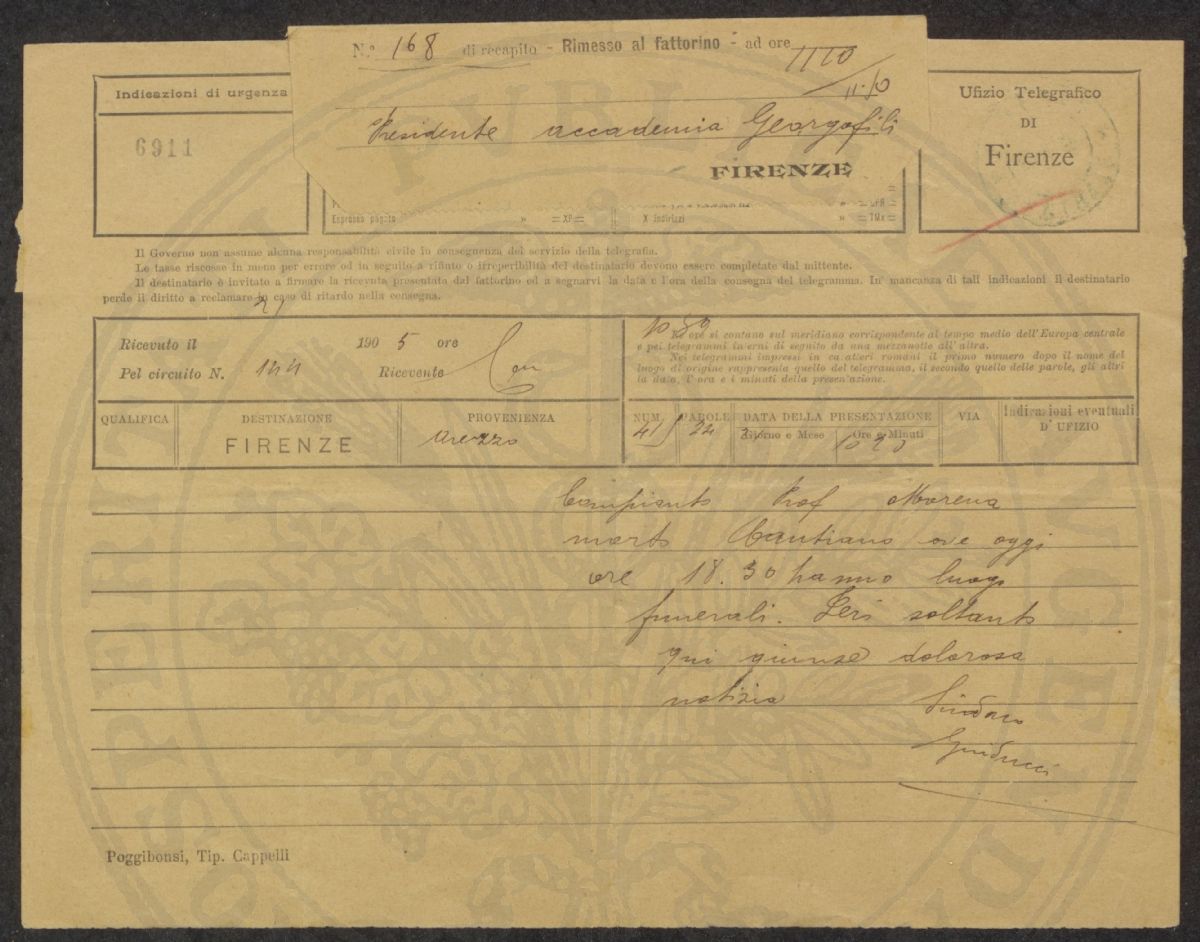 N.° 168 di recapito - Rimesso al fattorino - ad ore 1110
11.10
Presidente accademia Georgofili
FIRENZE
Indicazioni di urgenza
6911
Ufizio Telegrafico
DI
Firenze
Espresso pagato " =XP= X indirizzi " =TMx=
Il Governo non assume alcuna responsabilità civile in conseguenza del servizio della telegrafia.
Le tasse riscosse in meno per errore od in seguito a rifiuto o irreperibilità del destinatario devono essere completate dal mittente.
Il destinatario è invitato a firmare la ricevuta presentata dal fattorino ed a segnarvi la data e l'ora della consegna del telegramma. In mancanza di tali indicazioni il destinatario
perde il diritto a reclamare in caso di ritardo nella consegna.
Ricevuto il 21 1905 ore 10 50
Pel circuito N. 144 Ricevente
Le ore si contano sul meridiano corrispondente al tempo medio dell'Europa centrale
e pei telegrammi interni di seguito da una mezzanotte all'altra.
Nei telegrammi impressi in caratteri romani il primo numero dopo il nome del
luogo di origine rappresenta quello del telegramma, il secondo quello delle parole, gli altri
la data, l'ora e i minuti della presentazione.
QUALIFICA DESTINAZIONE PROVENIENZA
FIRENZE Arezzo
NUM. PAROLE DATA DELLA PRESENTAZIONE VIA Indicazioni eventuali
Giorno e Mese Ore e Minuti D'UFIZIO
22 10 20
Compianto Prof Morena
morto Cantiano ove oggi
ore 18.30 hanno luogo
funerali. Ieri soltanto
qui giunse dolorosa
notizia Sindaco
Guiducci
Poggibonsi, Tip. Cappelli